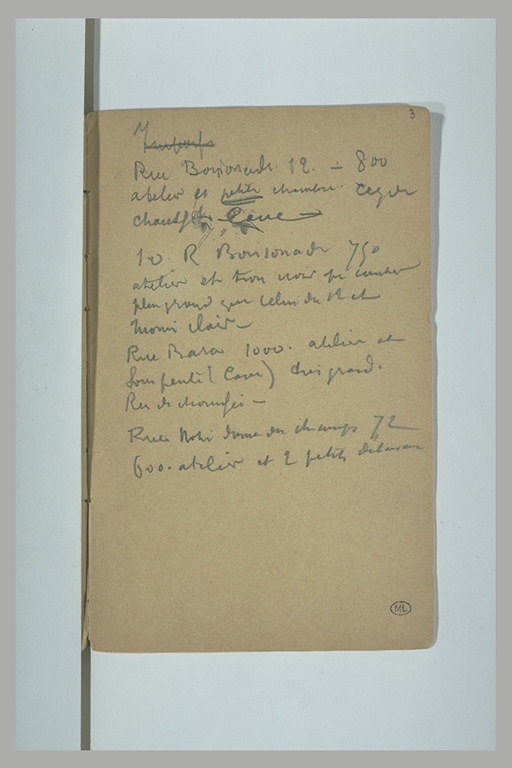 3
Rue Boissonade 12. – 800
atelier et petite chambre
chauff Cave –
10. R Boissonade 750
atelier et trou noir
plus grand que celui du 12 et
moins clair –
Rue Bara 1000. atelier et
Soupente (Cave) très grand.
Rez de chaussée –
Rue Notre Dame des champs 72
600. atelier et 2 petits
ML